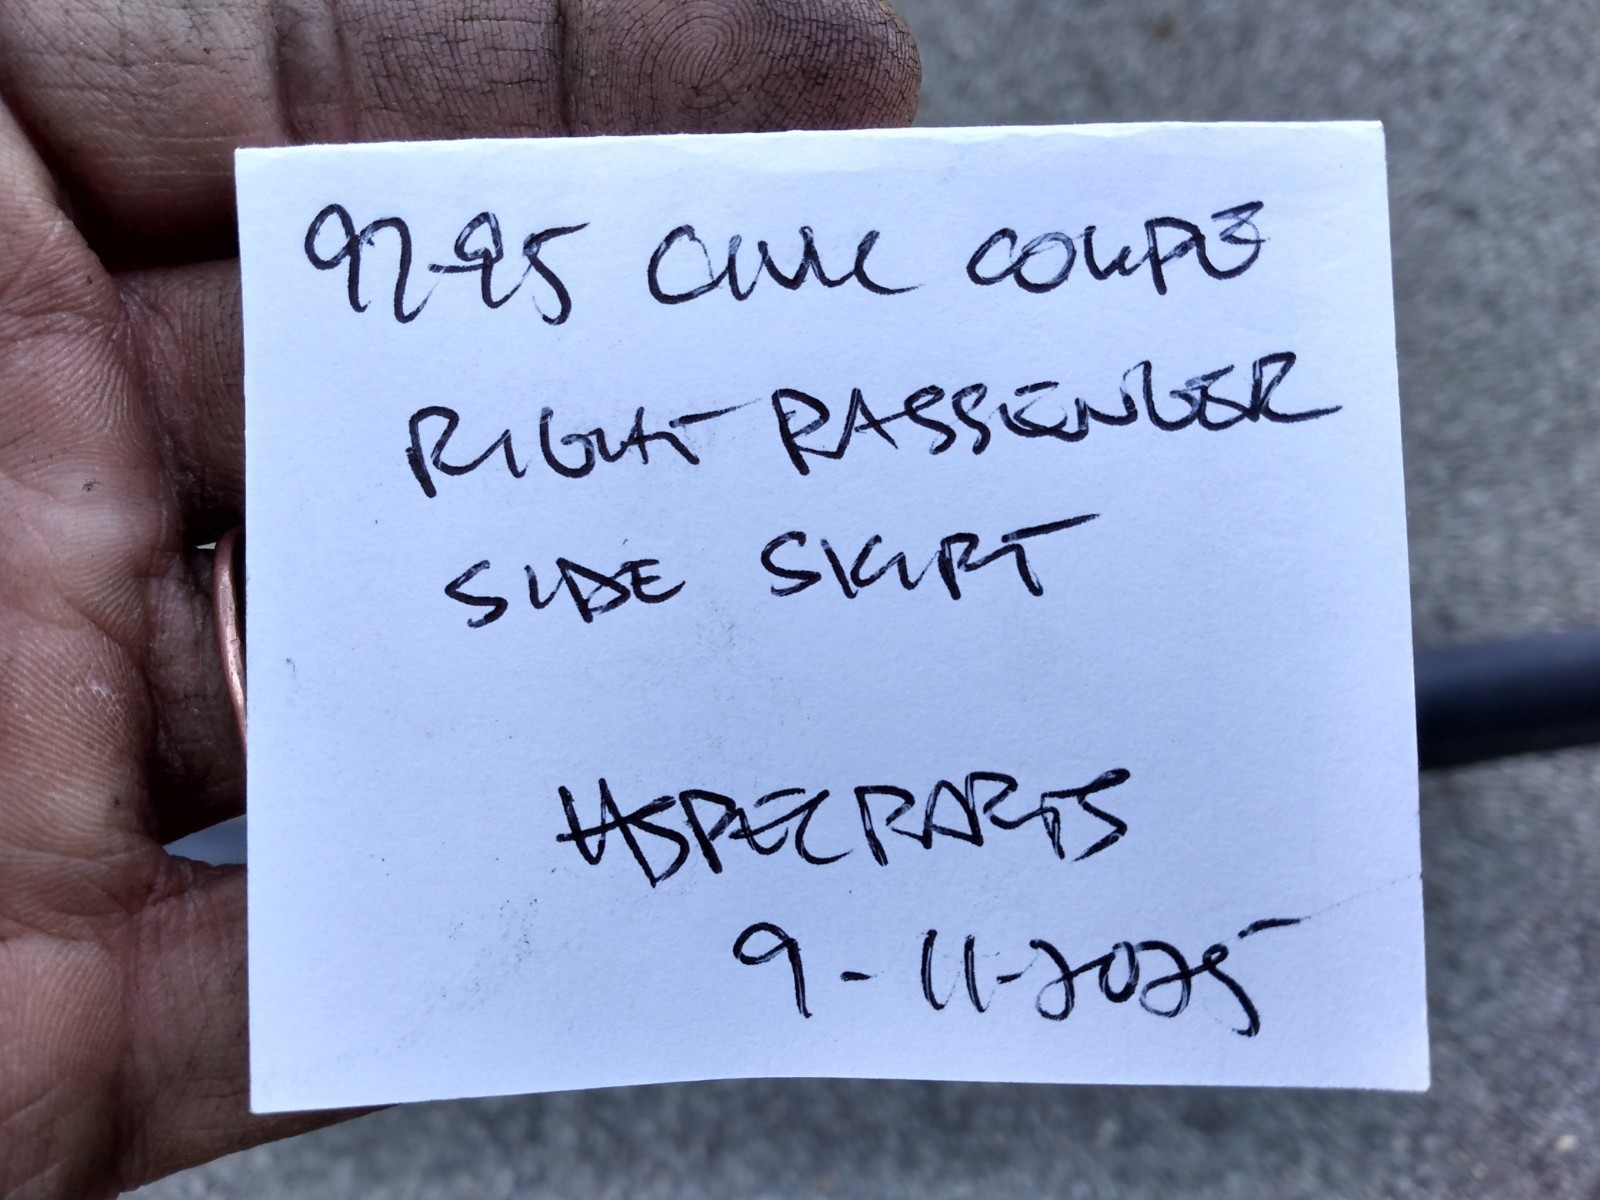 92-95 CIVIC COUPE
RIGHT PASSENGER
SIDE SKIRT
HSPECPARTS
9-11-2025